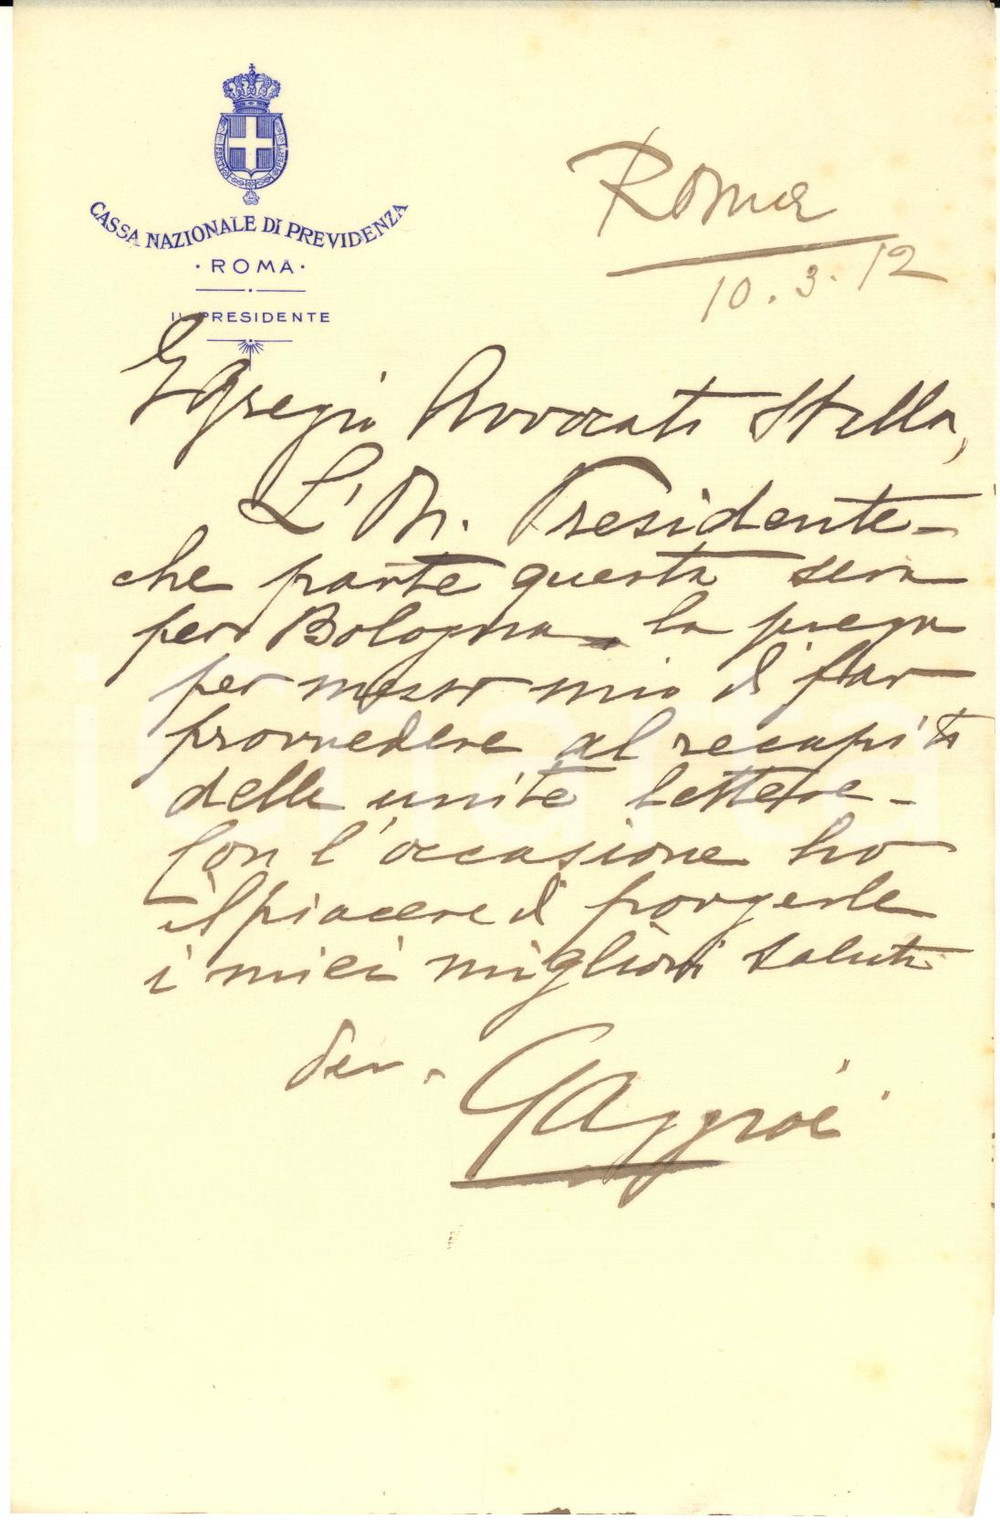 CASSA NAZIONALE DI PREVIDENZA
· ROMA ·
IL PRESIDENTE
Roma
10.3.12
Egregio Avvocato Stella,
L'On. Presidente -
che parte questa sera
per Bologna - la prega
per mezzo mio di far
provvedere al recapito
delle unite lettere -
Con l'occasione ho
il piacere di porgerle
i miei migliori saluti
Dev.